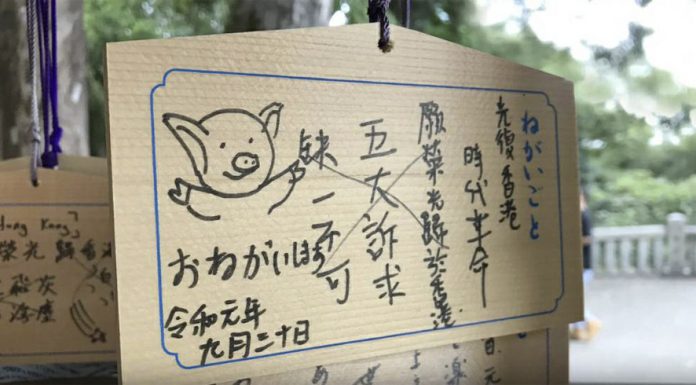 ねがいごと
光復香港
時代革命
願榮光歸於香港
五大訴求
缺一不可
おねがいします
令和元年
九月二十日
Hong Kong」
榮光歸香港
飛灰
塵